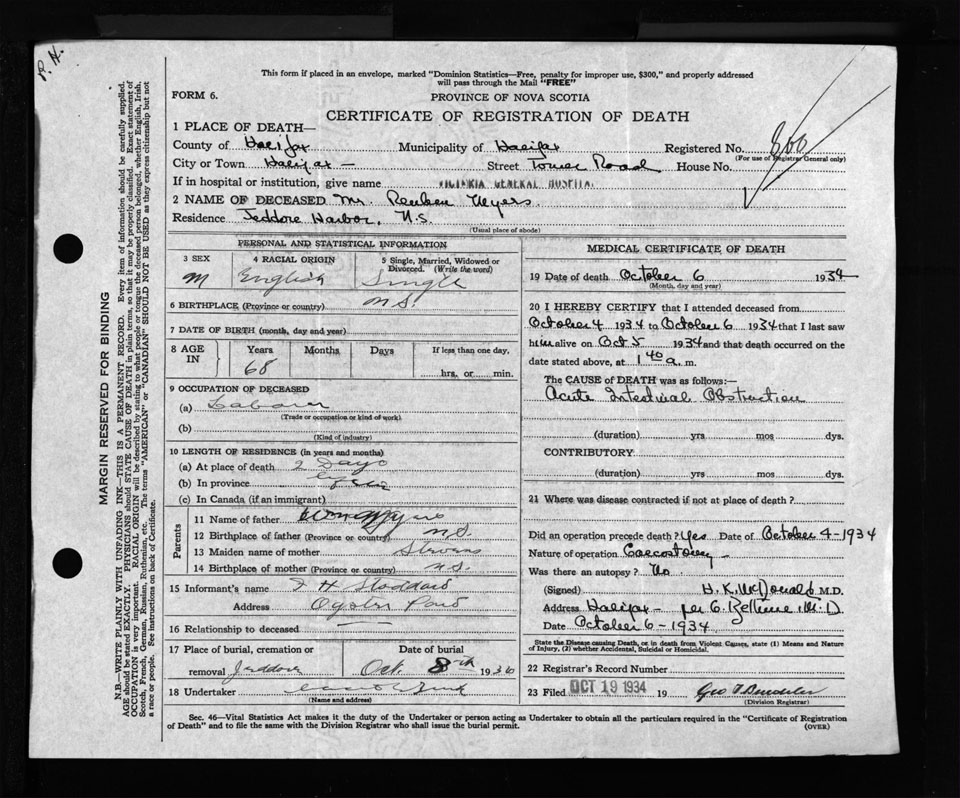 P. H.
This form if placed in an envelope, marked "Dominion Statistics—Free, penalty for improper use, $300," and properly addressed
will pass through the Mail "FREE"
FORM 6.
PROVINCE OF NOVA SCOTIA
CERTIFICATE OF REGISTRATION OF DEATH
1 PLACE OF DEATH—
County of Halifax Municipality of Halifax Registered No. 800
(For use of Registrar General only)
City or Town Halifax — Street Tower Road House No.
If in hospital or institution, give name VICTORIA GENERAL HOSPITAL
2 NAME OF DECEASED Mr. Reuben Myers
Residence Jeddore Harbor, N.S.
(Usual place of abode)
PERSONAL AND STATISTICAL INFORMATION
3 SEX 4 RACIAL ORIGIN 5 Single, Married, Widowed or
Divorced. (Write the word)
M English Single
6 BIRTHPLACE (Province or country) N.S.
7 DATE OF BIRTH (month, day and year)
8 AGE IN Years Months Days If less than one day,
68 hrs. or min.
9 OCCUPATION OF DECEASED
(a) Laborer
(Trade or occupation or kind of work)
(b)
(Kind of industry)
10 LENGTH OF RESIDENCE (in years and months)
(a) At place of death 2 Days
(b) In province
(c) In Canada (if an immigrant)
Parents
11 Name of father Wm Myers
12 Birthplace of father (Province or country) N.S.
13 Maiden name of mother Stevens
14 Birthplace of mother (Province or country) N.S.
15 Informant's name H Stoddard
Address Oyster Pond
16 Relationship to deceased —
17 Place of burial, cremation or Date of burial
removal Jeddore Oct. 8th 1936
18 Undertaker
(Name and address)
MEDICAL CERTIFICATE OF DEATH
19 Date of death October 6 1934
(Month, day and year)
20 I HEREBY CERTIFY that I attended deceased from
October 4 1934 to October 6 1934 that I last saw
him alive on Oct 5 1934 and that death occurred on the
date stated above, at 1 40 a. m.
The CAUSE of DEATH was as follows:—
Acute Intestinal Obstruction
(duration) yrs mos dys.
CONTRIBUTORY
(duration) yrs mos dys.
21 Where was disease contracted if not at place of death?
Did an operation precede death? Yes Date of October 4-1934
Nature of operation Caecostomy —
Was there an autopsy? No
(Signed) H. K. McDonald M.D.
Address Halifax — per
Date October 6-1934
State the Disease causing Death, or in death from Violent Causes, state (1) Means and Nature
of Injury, (2) whether Accidental, Suicidal or Homicidal.
22 Registrar's Record Number
23 Filed OCT 19 1934 19 Geo
(Division Registrar)
Sec. 46—Vital Statistics Act makes it the duty of the Undertaker or person acting as Undertaker to obtain all the particulars required in the "Certificate of Registration
of Death" and to file the same with the Division Registrar who shall issue the burial permit.
(OVER)
MARGIN RESERVED FOR BINDING
N.B.—WRITE PLAINLY WITH UNFADING INK—THIS IS A PERMANENT RECORD. Every item of information should be carefully supplied.
AGE should be stated EXACTLY. PHYSICIANS should STATE CAUSE OF DEATH in plain terms, so that it may be properly classified. Exact statement of
OCCUPATION is very important. RACIAL ORIGIN will be described by stating to what people or tongue the deceased person belonged, whether English, Irish,
Scotch, French, German, Russian, Ruthenian, etc. The terms "AMERICAN" or "CANADIAN" SHOULD NOT BE USED as they express citizenship but not
a race or people. See instructions on back of Certificate.